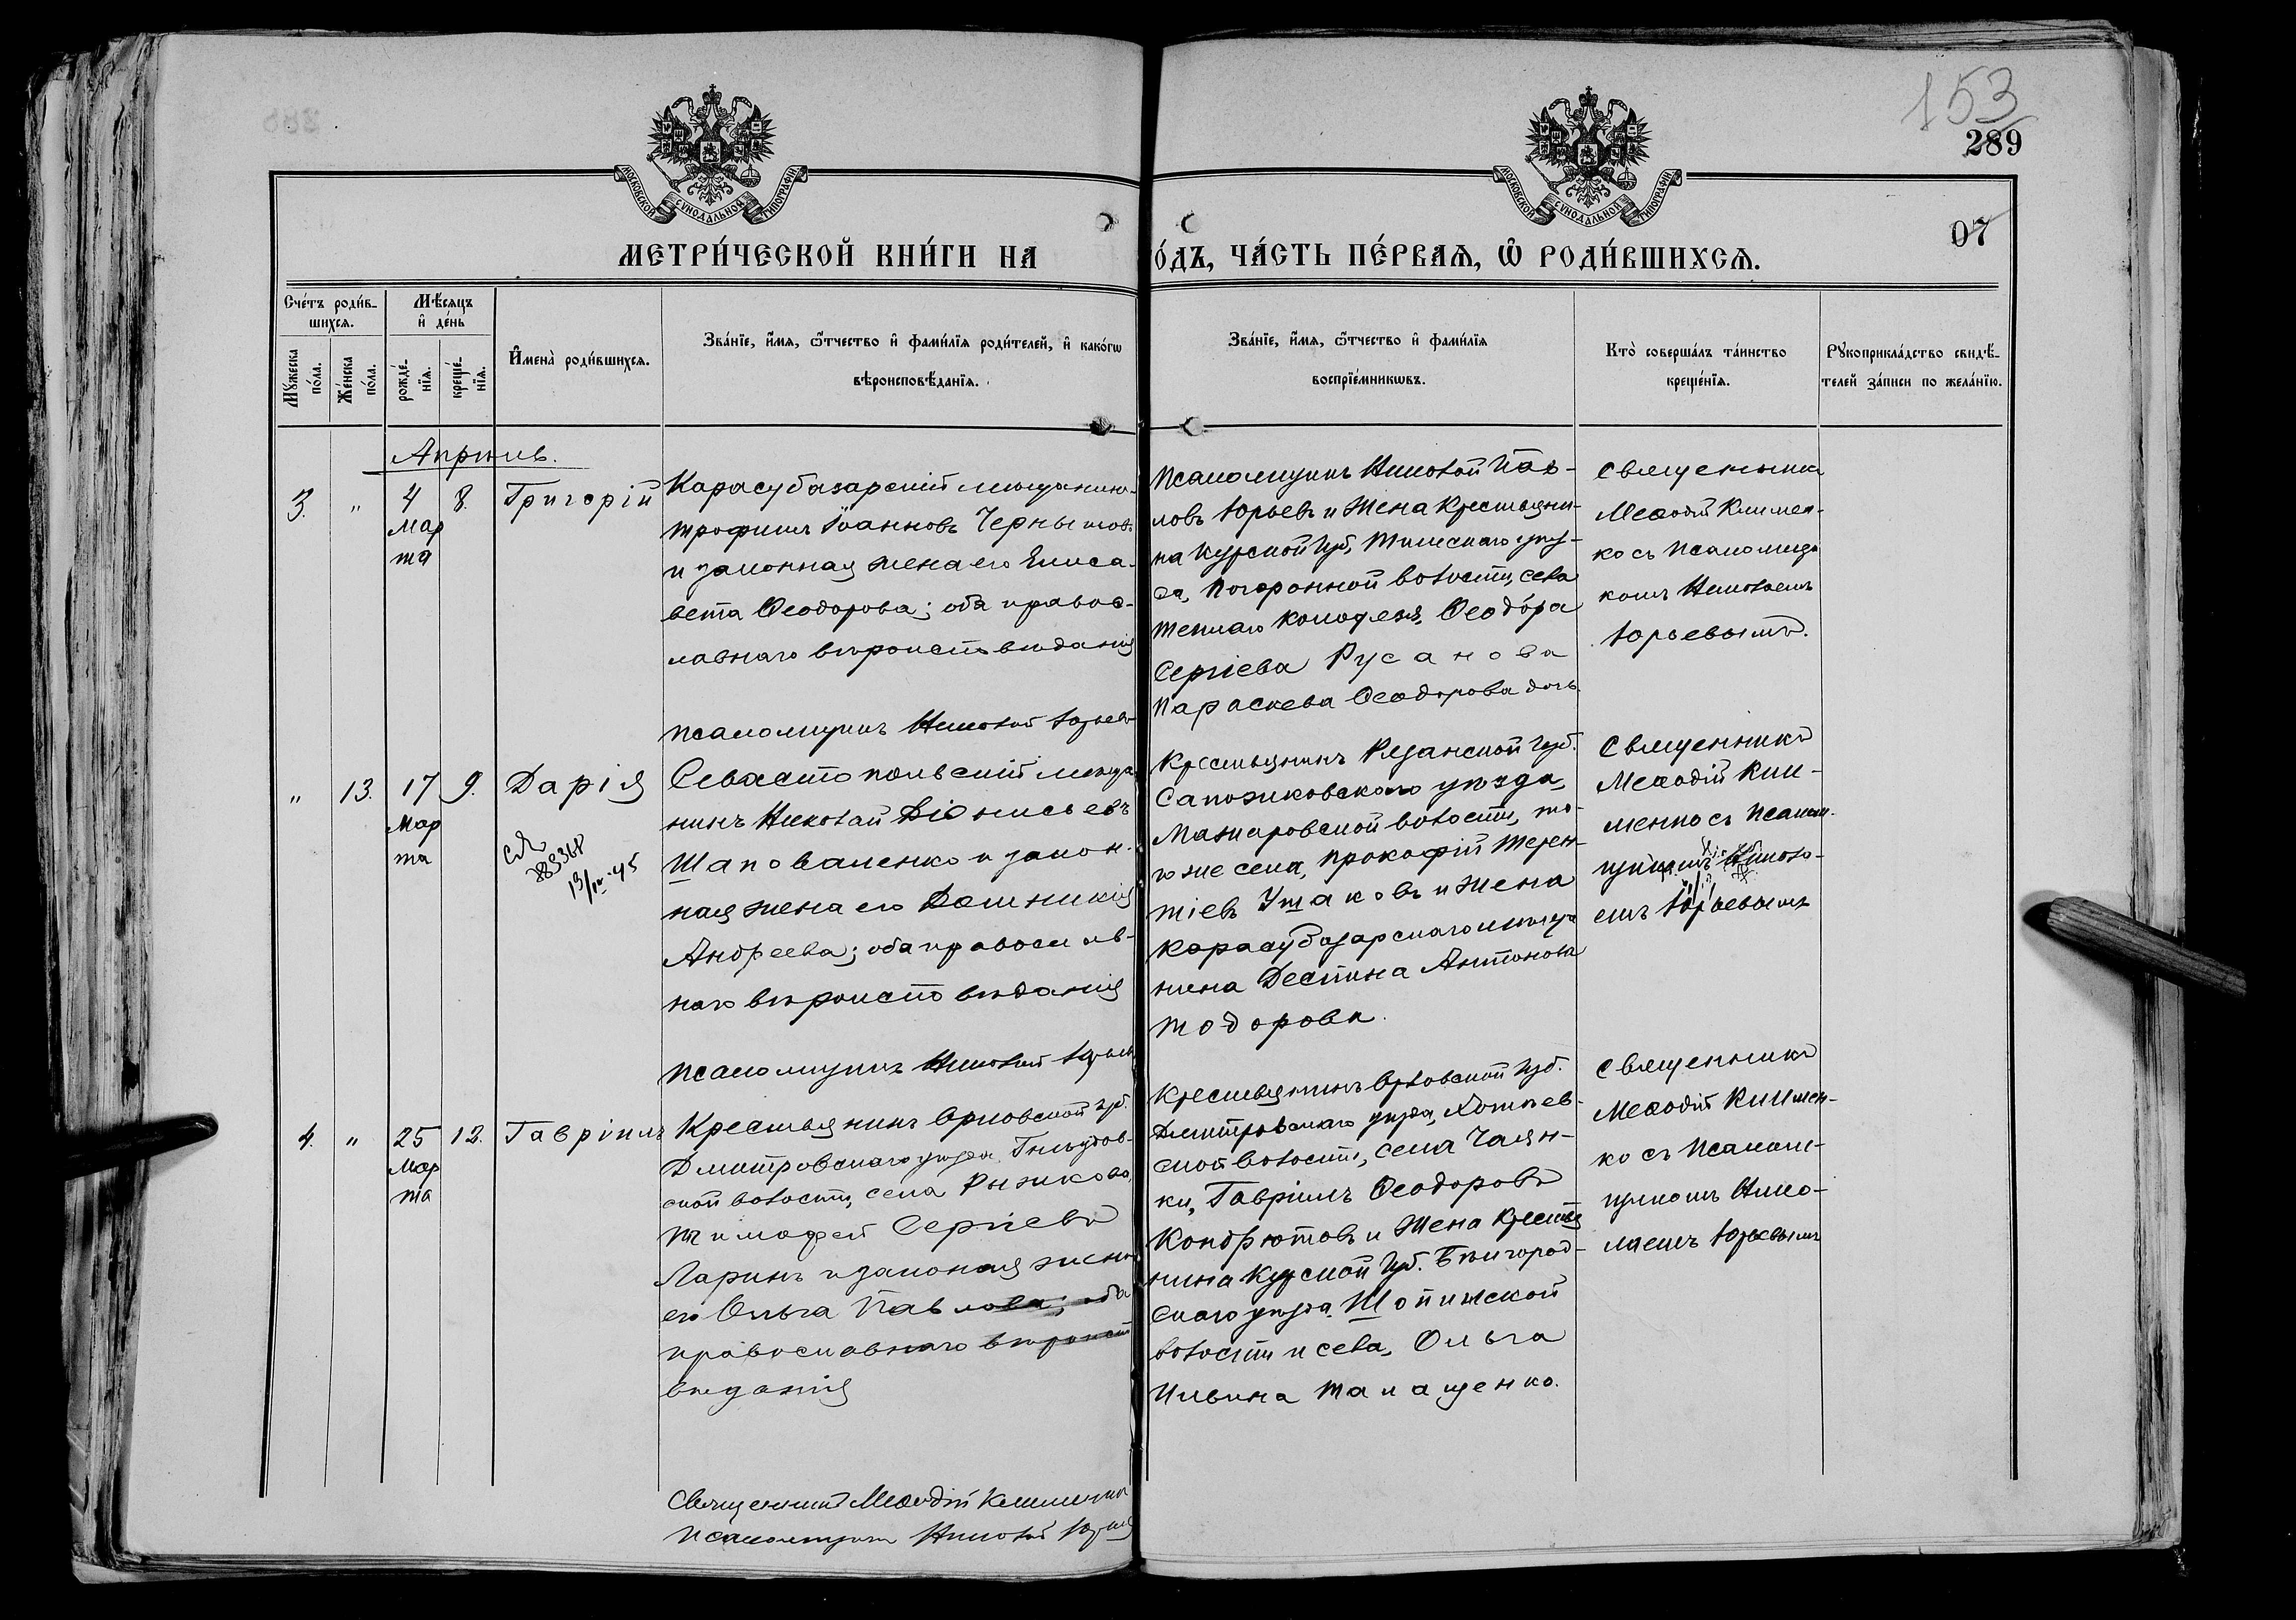 153
289
07
МОСКОВСКОЙ СѴНОДАЛЬНОЙ ТИПОГРАФІИ
МОСКОВСКОЙ СѴНОДАЛЬНОЙ ТИПОГРАФІИ
МЕТРИ́ЧЕСКОЙ КНИ́ГИ НА
О́ДЪ, ЧА́СТЬ ПЕ́РВАѦ, Ѡ҆ РОДИ́ВШИХСѦ.
Сче́тъ роди́в-
шихсѧ.
Мꙋ́жеска по́ла.
Же́нска по́ла.
Мѣ́сѧцъ
и҆ де́нь
рожде́-
нїѧ.
креще́-
нїѧ.
И҆мена̀ роди́вшихсѧ.
Зва́нїе, и҆́мѧ, ѻ҆́тчество и҆ фами́лїѧ роди́телей, и҆ како́гѡ
вѣроисповѣ́данїѧ.
Зва́нїе, и҆́мѧ, ѻ҆́тчество и҆ фами́лїѧ
воспрїе́мникѡвъ.
Кто̀ соверша́лъ та́инство
креще́нїѧ.
Рꙋкоприкла́дство свидѣ́-
телей за́писи по жела́нїю.
Апрѣль.
3. " 4 8. Григорій
Мар
та
Карасубазарскій мѣщанинъ
Трофимъ Іоанновъ Чернышовъ
и законная жена его Елиса-
вета Ѳеодорова; оба правос-
лавнаго вѣроисповѣданія
Псаломщикъ Николай Юрьевъ
Псаломщикъ Николай Пав-
ловъ Юрьевъ и жена крестьяни-
на Курской губ, Тимскаго уѣз-
да, волости, села
Теплаго Колодезя, Ѳеодора
Сергіева Русанова
Параскева Ѳеодорова дочь.
Священникъ
Меѳодій Климен-
ко съ псаломщи
комъ Николаемъ
Юрьевымъ.
" 13. 17 9. Дарія
Мар
та
Севастопольскій мѣща
нинъ Николай Діонисьевъ
Шаповаленко и закон-
ная жена его Домникія
Андреева; оба православ-
наго вѣроисповѣданія
Псаломщикъ Николай Юрьевъ
Крестьянинъ Рязанской губ.
Сапожковскаго уѣзда,
Можаровской волости, то-
го же села, Прокофій Терен-
тіевъ Ушаковъ и жена
Карасубазарскаго мѣща
нина Деспина Антонова
Тодорова.
Священникъ
Меѳодій Кли-
менко съ псалом-
щикомъ Никола-
емъ Юрьевымъ
4. " 25 12. Гавріилъ
Мар
та
Крестьянинъ Орловской губ.
Дмитровскаго уѣзда,
ской волости, села Рыжкова,
Тимофей Сергіевъ
Ларинъ и законная жена
его Ольга Павлова; оба
православнаго вѣроиспо
вѣданія
Крестьянинъ Орловской губ.
Дмитровскаго уѣзда,
ской волости, села Чаян-
ки, Гавріилъ Ѳеодоровъ
Кондрютовъ и жена крестья
нина Курской губ. Бѣлгород-
скаго уѣзда, Шопинской
волости и села, Ольга
Ильина Талащенко.
Священникъ
Меѳодій Климен-
ко съ псалом-
щикомъ Нико-
лаемъ Юрьевымъ
Священникъ Меѳодій Клименко
Псаломщикъ Николай Юрьевъ